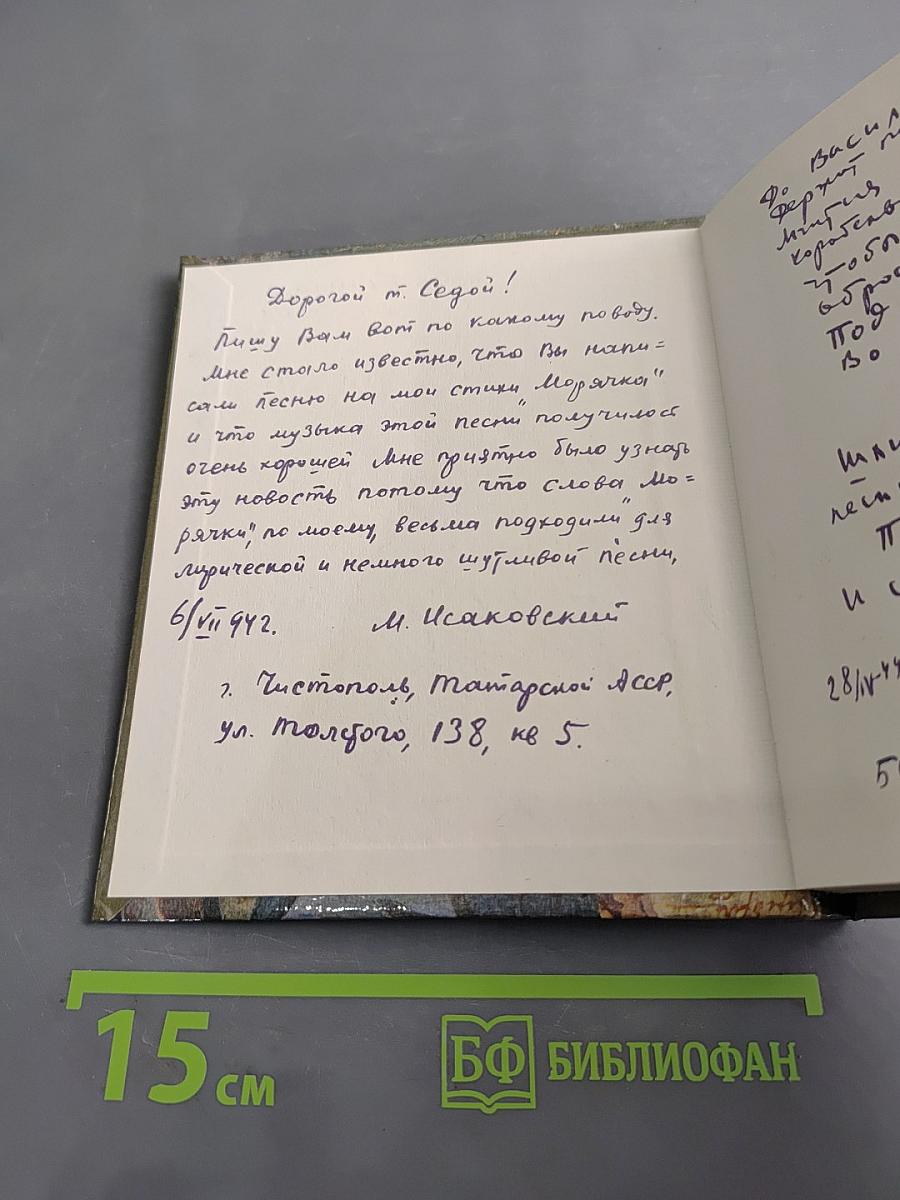 Дорогой т. Седой!
Пишу Вам вот по какому поводу.
Мне стало известно, что Вы напи=
сали песню на мои стихи „Морячка"
и что музыка этой песни получилось
очень хорошей Мне приятно было узнать
эту новость потому что слова „Мо=
рячки", по моему, весьма подходили для
лирической и немного шутливой песни,
6/VII 942.
М. Исаковский
г. Чистополь, Татарской АССР,
ул. Толстого, 138, кв 5.
До Васил
Держит
коробень
чтобы
Под
Во
песн
И с
28/IV-44
15 см
БФ БИБЛИОФАН